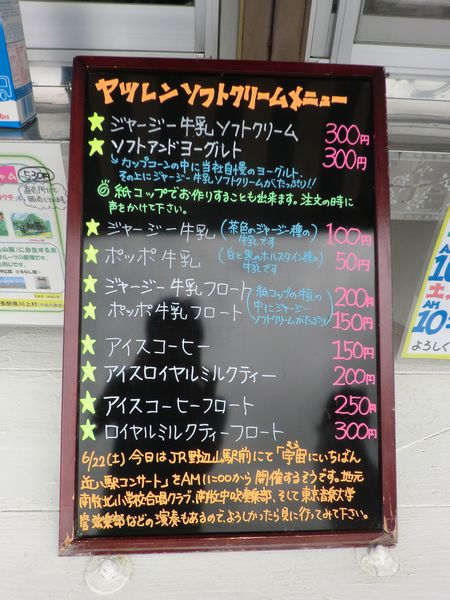 ヤツレン ソフトクリームメニュー
★ ジャージー牛乳ソフトクリーム 300円
★ ソフトアンドヨーグルト 300円
カップコーンの中に当社自慢のヨーグルト、
その上にジャージー牛乳ソフトクリームがたっぷり!!
紙コップでお作りすることも出来ます。注文の時に
声をかけて下さい。
★ ジャージー牛乳 (茶色のジャージー種の牛乳です) 100円
★ ポッポ牛乳 (白と黒のホルスタイン種の牛乳です) 50円
★ ジャージー牛乳フロート 200円
★ ポッポ牛乳フロート 150円
(紙コップの牛乳の
中にジャージー
ソフトクリームがたっぷり)
★ アイスコーヒー 150円
★ アイスロイヤルミルクティー 200円
★ アイスコーヒーフロート 250円
★ ロイヤルミルクティーフロート 300円
6/22(土) 今日はJR野辺山駅前にて「宇宙にいちばん
近い駅コンサート」をAM11:00から開催するそうです。地元
南牧北小学校合唱クラブ、南牧中吹奏楽部、そして東京音楽大学
管弦楽部などの演奏もあるので、よろしかったら見に行ってみて下さい。
530円
長野県川上村
AM
よろしく